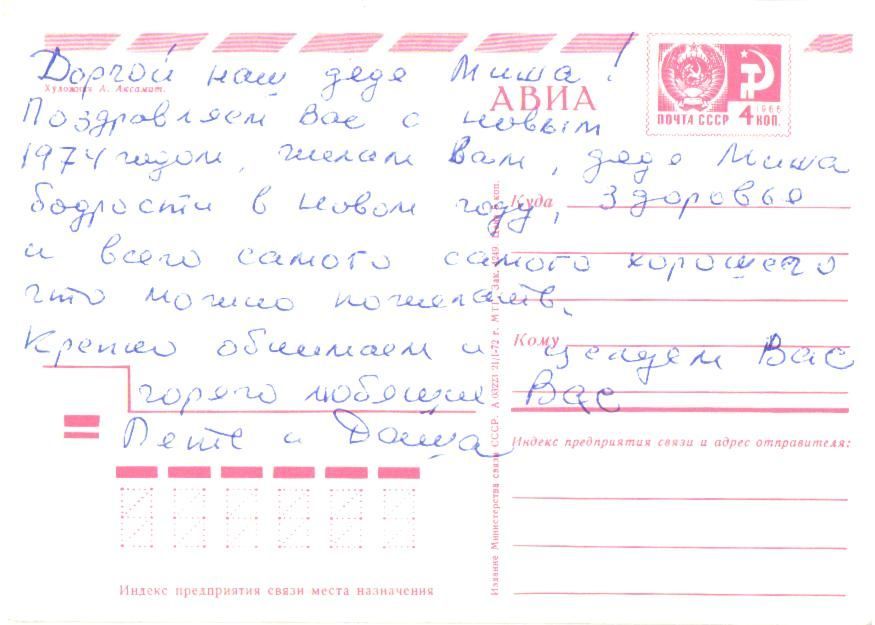 Доргой наш деде Миша!
Художник А. Аксамит.
АВИА
1966
ПОЧТА СССР 4 КОП.
Поздравляем Вас с новым
1974 годом, желаем Вам, деде Миша
бодрости в новом году, здоровье
и всего самого самого хорошего
что можно пожелать.
Крепко обнимаем и целуем Вас
горячо любящие Вас
Петя и Даша
Куда
Кому
Индекс предприятия связи и адрес отправителя:
Индекс предприятия связи места назначения
Издание Министерства связи СССР. А 03223 21/I-72 г. МТГ Зак. коп.